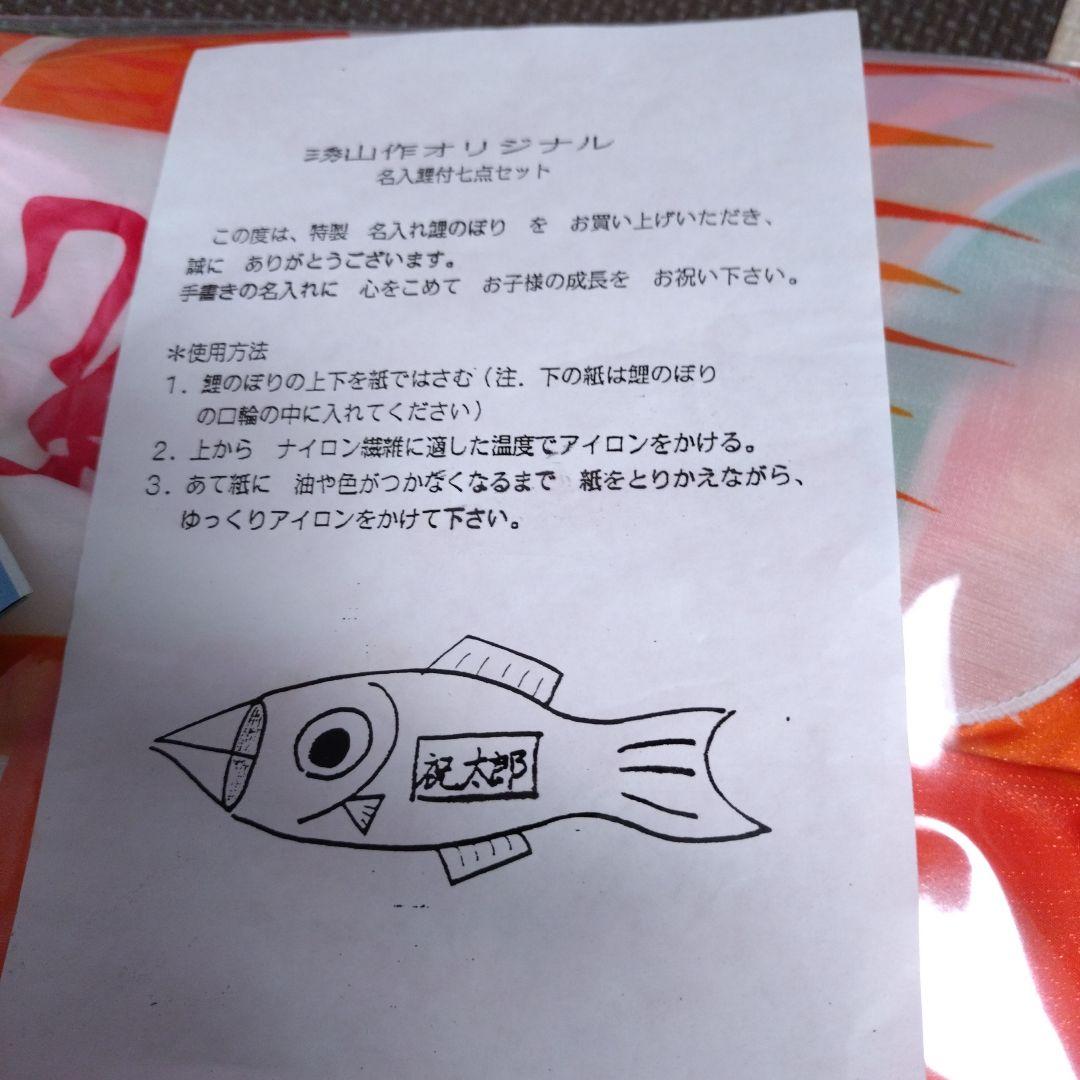 山作オリジナル
名入鯉付七点セット
この度は、特製 名入れ鯉のぼり を お買い上げいただき、
誠に ありがとうございます。
手書きの名入れに 心をこめて お子様の成長を お祝い下さい。
＊使用方法
1．鯉のぼりの上下を紙ではさむ（注．下の紙は鯉のぼり
の口輪の中に入れてください）
2．上から ナイロン繊維に適した温度でアイロンをかける。
3．あて紙に 油や色がつかなくなるまで 紙をとりかえながら、
ゆっくりアイロンをかけて下さい。
祝太郎